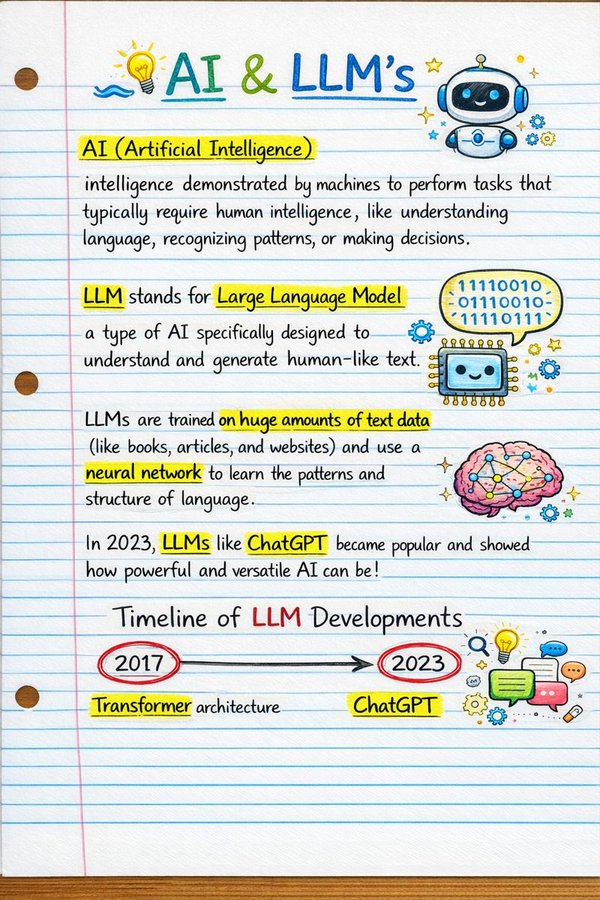 AI & LLM's
AI (Artificial Intelligence)
intelligence demonstrated by machines to perform tasks that
typically require human intelligence, like understanding
language, recognizing patterns, or making decisions.
LLM stands for Large Language Model
a type of AI specifically designed to
understand and generate human-like text.
11110010
01110010
11110111
LLMs are trained on huge amounts of text data
(like books, articles, and websites) and use a
neural network to learn the patterns and
structure of language.
In 2023, LLMs like ChatGPT became popular and showed
how powerful and versatile AI can be!
Timeline of LLM Developments
2017 2023
Transformer architecture ChatGPT